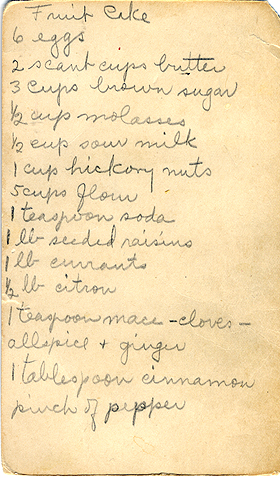 Fruit Cake
6 eggs
2 scant cups butter
3 cups brown sugar
½ cup molasses
½ cup sour milk
1 cup hickory nuts
5 cups flour
1 teaspoon soda
1 lb seeded raisins
1 lb currants
½ lb citron
1 teaspoon mace - cloves -
allspice + ginger
1 tablespoon cinnamon
pinch of pepper